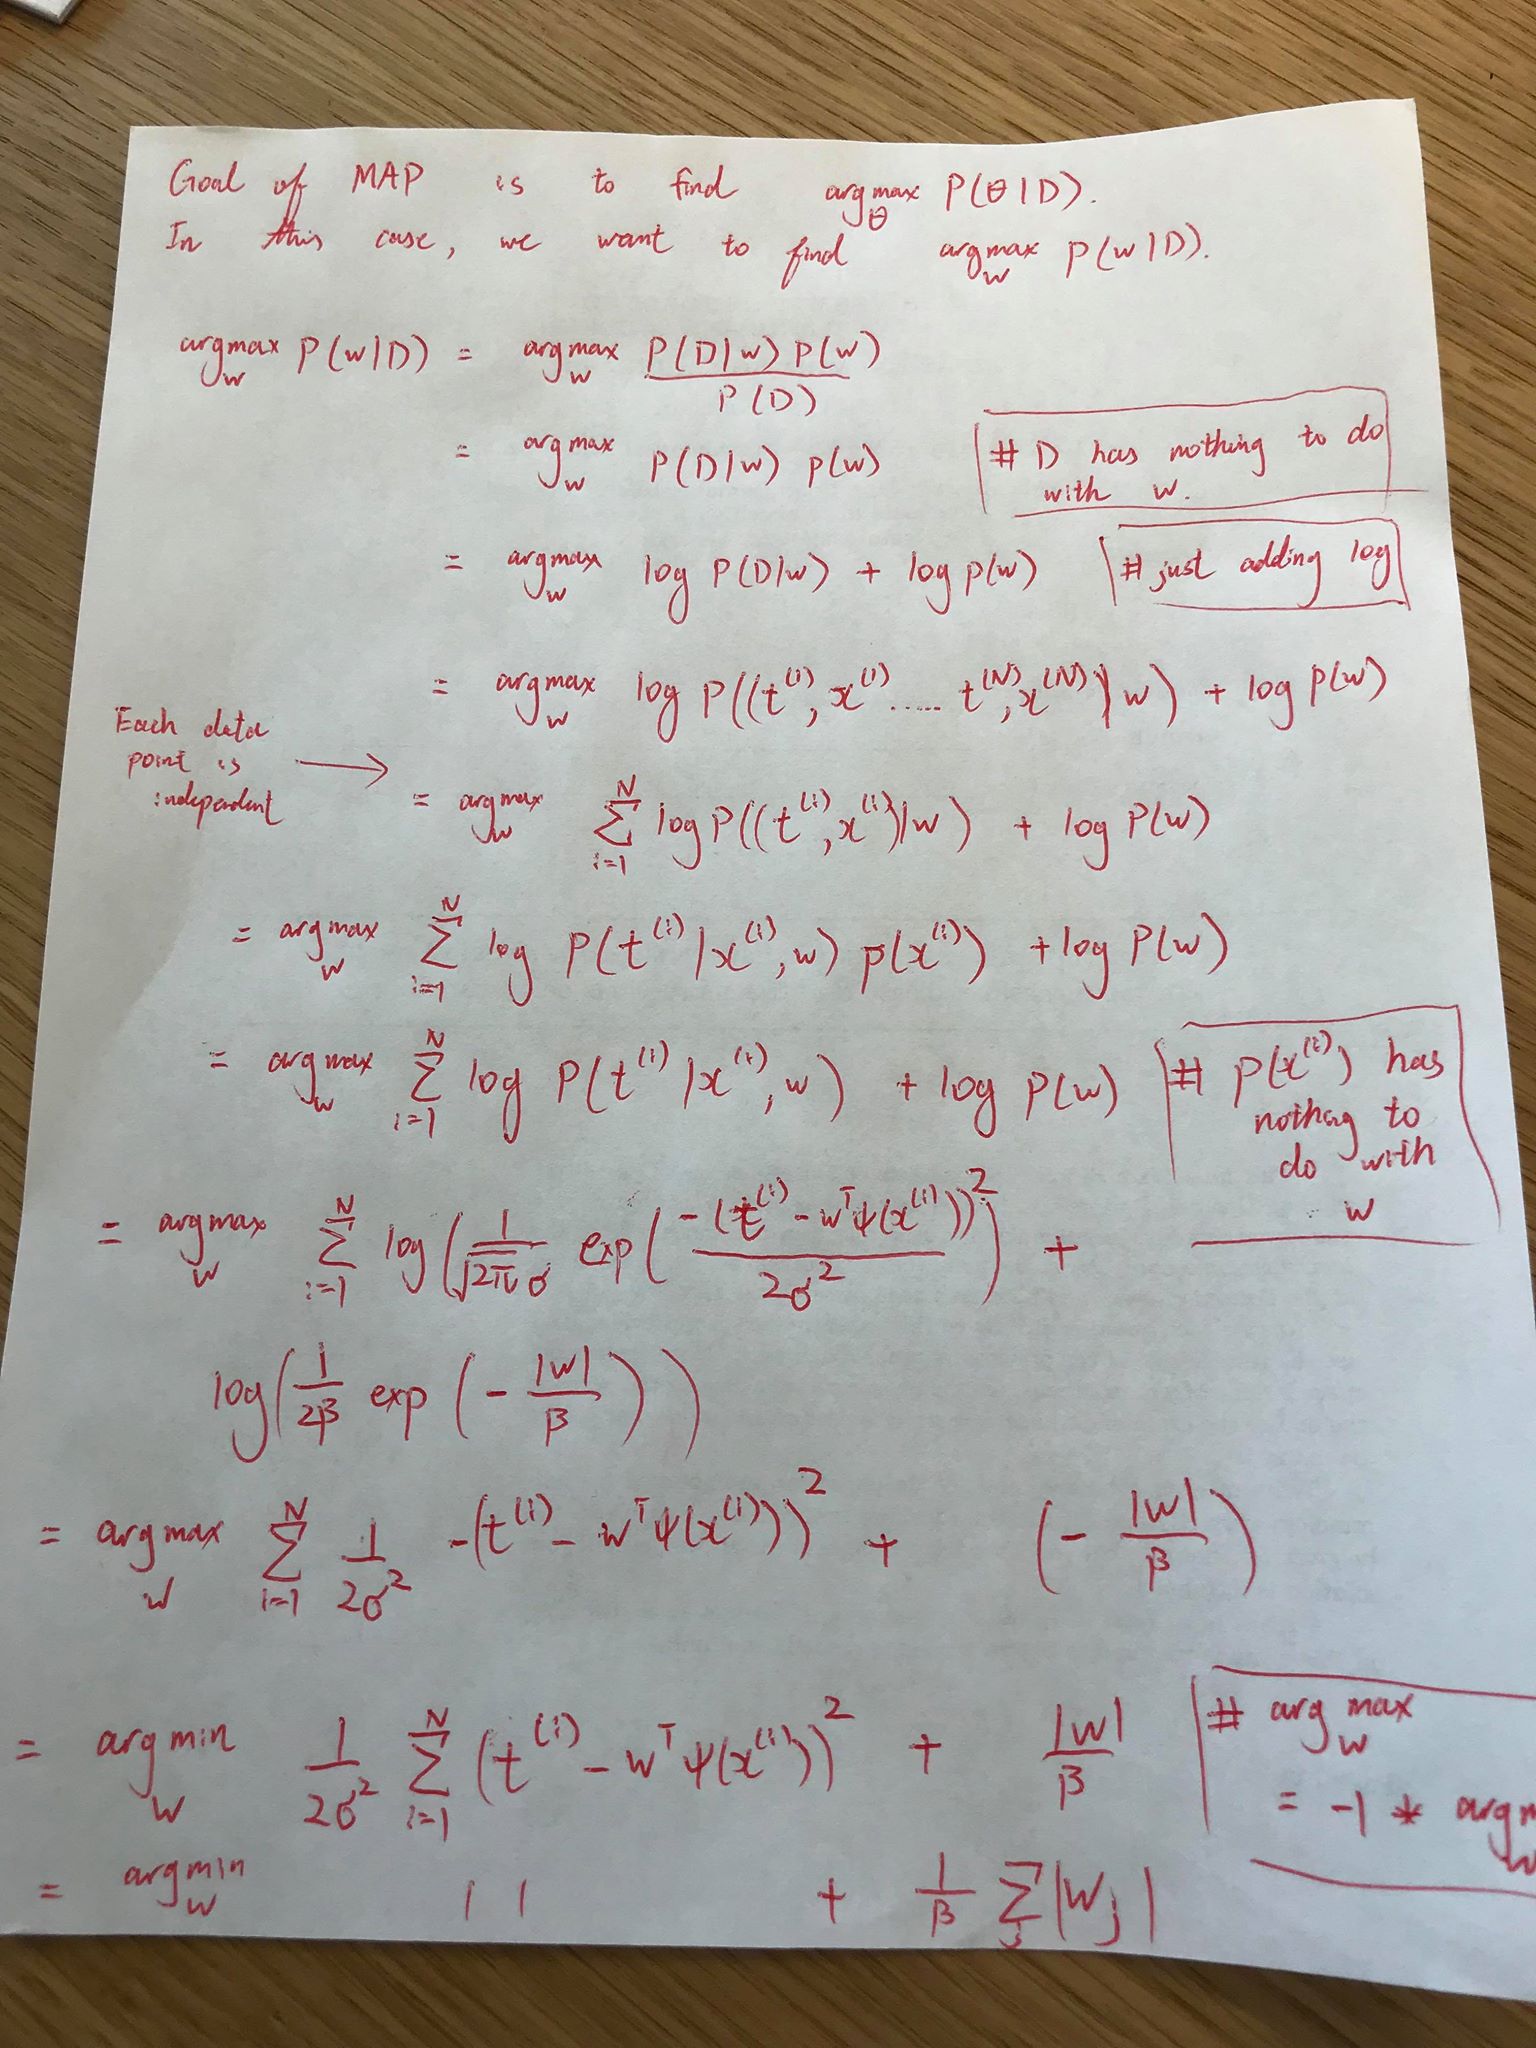 Goal of MAP is to find argmax_θ P(θ|D).
In this case, we want to find argmax_w P(w|D).
argmax_w P(w|D) = argmax_w P(D|w) P(w) / P(D)
= argmax_w P(D|w) P(w) # D has nothing to do
with w.
= argmax_w log P(D|w) + log p(w) # just adding log
= argmax_w log P((t^(1), x^(1) ..... t^(N), x^(N))|w) + log P(w)
Each data
point is →
independent
= argmax_w Σ_{i=1}^N log P((t^(i), x^(i))|w) + log P(w)
= argmax_w Σ_{i=1}^N log P(t^(i)|x^(i), w) p(x^(i)) + log P(w)
= argmax_w Σ_{i=1}^N log P(t^(i)|x^(i), w) + log P(w) # P(x^(i)) has
nothing to
do with
w
= argmax_w Σ_{i=1}^N log(1/(√2π σ) exp(-(t^(i) - w^T ψ(x^(i)))^2 / 2σ^2)) +
log(1/2β exp(-|w|/β))
= argmax_w Σ_{i=1}^N 1/2σ^2 -(t^(i) - w^T ψ(x^(i)))^2 + (-|w|/β)
= argmin_w 1/2σ^2 Σ_{i=1}^N (t^(i) - w^T ψ(x^(i)))^2 + |w|/β # argmax_w
= -1 * argm
w
= argmin_w | | + 1/β Σ_j |w_j|